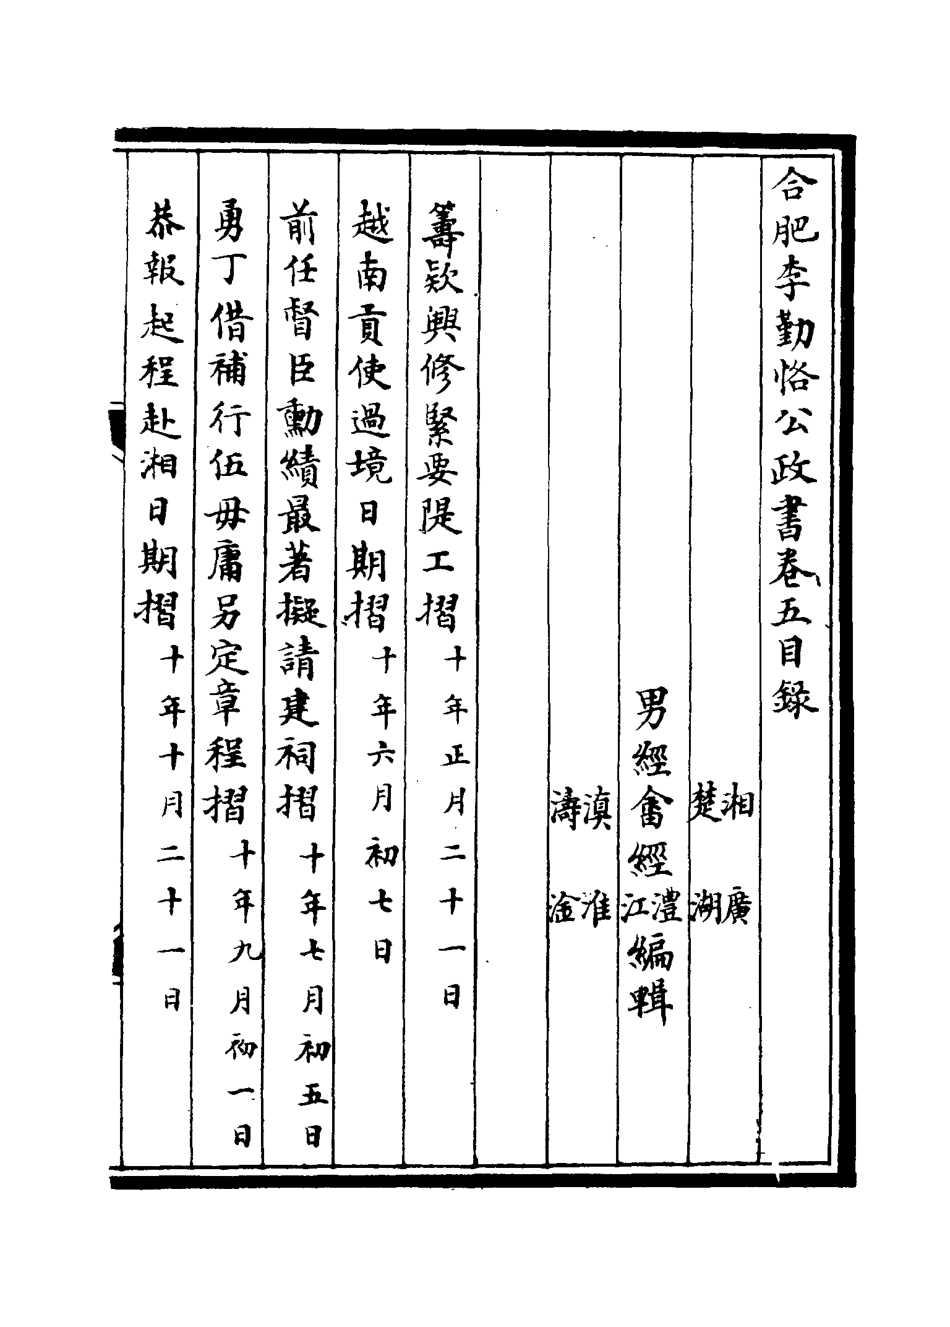 合肥李勤恪公政書卷五目錄
湘 廣
楚 湖
男經畬經澧江編輯
滇 淮
濤 淦
籌欵興修緊要隄工摺十年正月二十一日
越南貢使過境日期摺十年六月初七日
前任督臣勳績最著擬請建祠摺十年七月初五日
勇丁借補行伍毋庸另定章程摺十年九月初一日
恭報起程赴湘日期摺十年十月二十一日